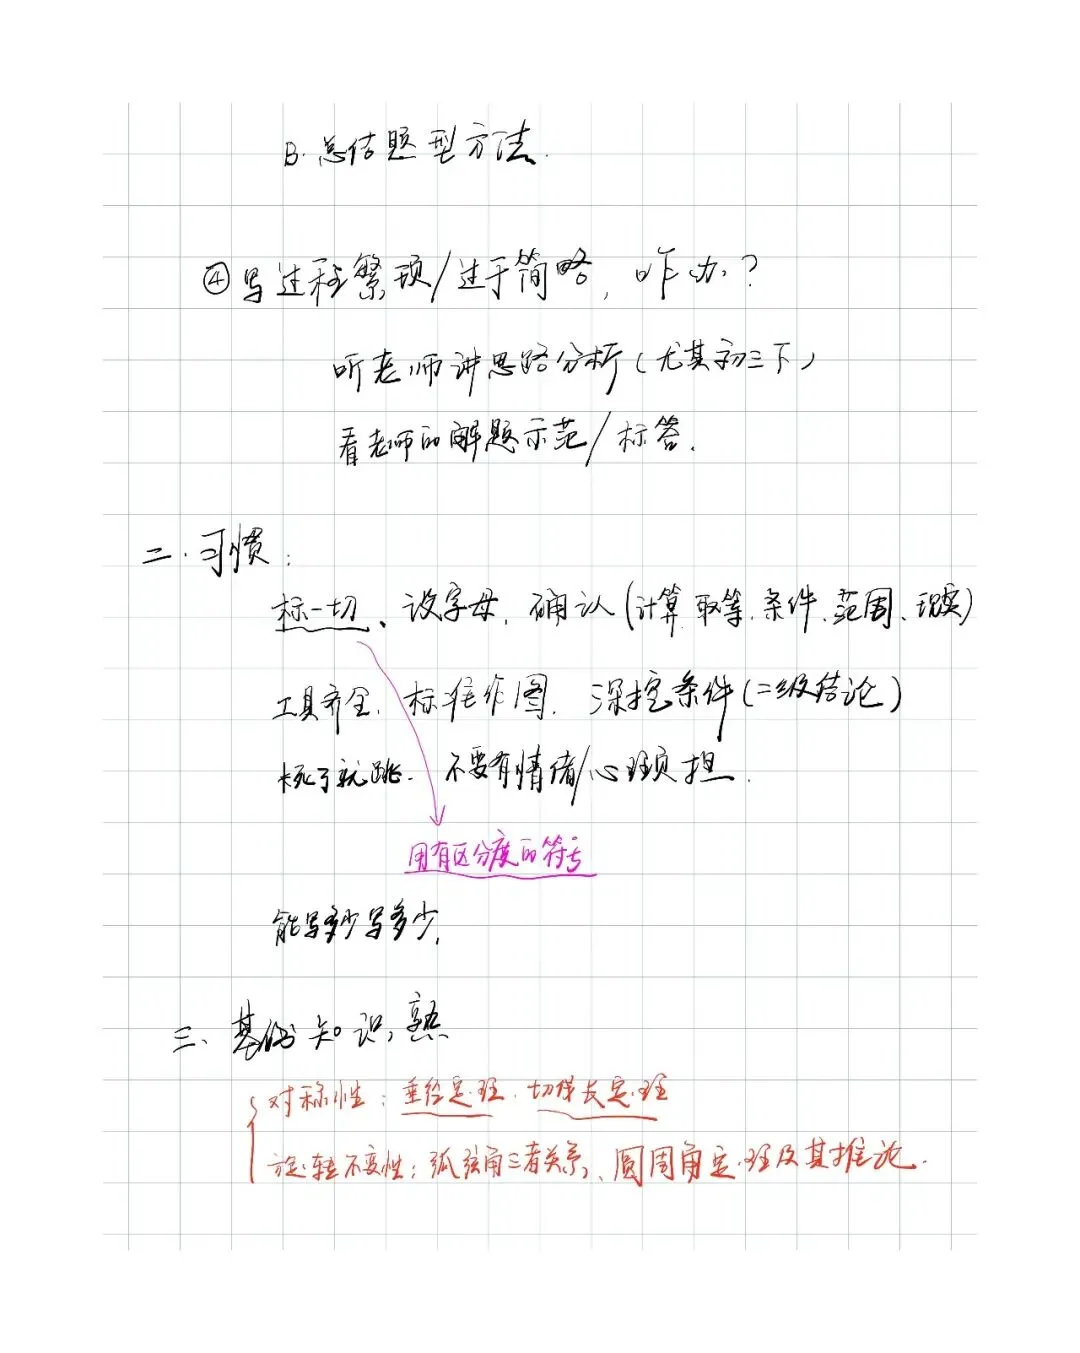 B. 总结题型方法.
④写过程繁琐/过于简略, 咋办?
听老师讲思路分析(尤其初三下)
看老师的解题示范/标答.
二. 习惯:
标一切、设字母, 确认(计算.取等.条件.范围、现实)
工具齐全. 标准作图. 深挖条件(二级结论)
楞了就跳. 不要有情绪/心理负担.
用有区分度的符号
能写多少写多少.
三、基础知识, 熟
对称性: 垂径定理. 切线长定理
旋转不变性: 弧弦角三者关系、圆周角定理及其推论.